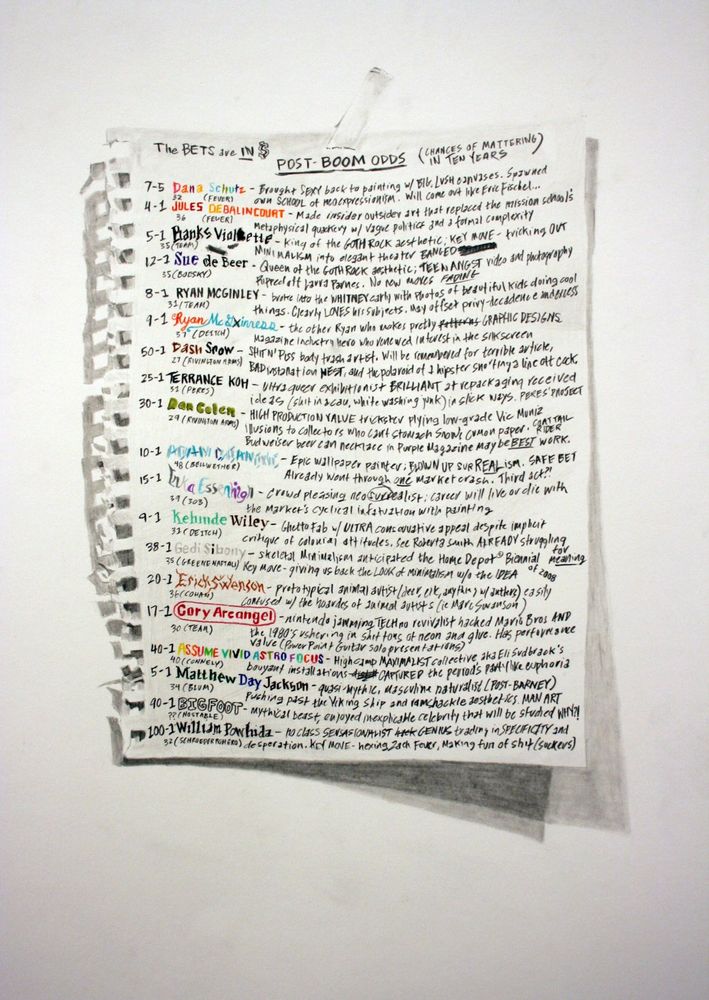 The BETS are IN $
POST-BOOM ODDS (CHANCES OF MATTERING)
IN TEN YEARS
7-5 Dana Schutz - Brought SEXY back to painting w/ BIG, LUSH canvases. Spawned
32 (FEVER) own SCHOOL of neoexpressionism. Will come out like Eric Fischel...
4-1 JULES DEBALINCOURT - Made insider outsider art that replaced the mission school's
36 (FEVER) metaphysical quakery w/ vague politics and a formal complexity
5-1 Banks Violette - King of the GOTH ROCK aesthetic; KEY MOVE - tricking OUT
35 (TEAM) MINIMALISM into elegant theater BANGED
12-1 Sue de Beer - Queen of the GOTH ROCK aesthetic; TEEN ANGST video and photography
35 (BOESKY) Ripped off Larra Parnes. No new moves FADING
8-1 RYAN MCGINLEY - broke into the WHITNEY early with photos of beautiful kids doing cool
31 (TEAM) things. Clearly LOVES his subjects. May offset privy-decadence underclass
9-1 Ryan McGinness - the other Ryan who makes pretty patterns GRAPHIC DESIGNS
37 (DEITCH) Magazine industry hero who renewed interest in the silkscreen
50-1 Dash Snow - SHIT N' PISS body trash artist. Will be remembered for terrible article,
27 (RIVINGTON ARMS) BAD installation NEST, and the polaroid of a hipster snorting a line off cock.
25-1 TERRANCE KOH - Ultra queer exhibitionist BRILLIANT at repackaging received
31 (PERES) ideas (shit in a can, white washing junk) in slick ways. PERES' PROJECT
30-1 Dan Colen - HIGH PRODUCTION VALUE trickster plying low-grade Vic Muniz
29 (RIVINGTON ARMS) illusions to collectors who can't stomach Snow's cum on paper. COATTAIL RIDER
Budweiser beer can necklace in Purple Magazine may be BEST work.
10-1 ADAM CVIJANOVIC - Epic wallpaper painter; BLOWN UP surREALism. SAFE BET
48 (BELLWETHER) Already went through one market crash. Third act?!
15-1 Inka Essenhigh - crowd pleasing neosurrealist; career will live or die with
39 (303) the market's cyclical infatuation with painting
9-1 Kehinde Wiley - Ghetto fab w/ ULTRA conservative appeal despite implicit
31 (DEITCH) critique of colonial attitudes. See Roberta Smith ALREADY struggling for meaning
38-1 Gedi Sibony - skeletal Minimalism anticipated the Home Depot® Biennial of 2008
35 (GREENE NAFTALI) Key move - giving us back the LOOK of minimalism w/o the IDEA
20-1 Erick Swenson - prototypical animal artist (deer, elk, anything w/ antlers) easily
36 (COHAN) confused w/ the hoardes of animal artists (ie Marc Swanson)
17-1 Cory Arcangel - nintendo jamming TECHno revivalist hacked Mario Bros AND
30 (TEAM) the 1980's ushering in shit tons of neon and glue. Has performance
value (Power Point Guitar solo presentations)
40-1 ASSUME VIVID ASTRO FOCUS - High camp MAXIMALIST collective aka Eli Sudbrack's
40 (CONNELLY) bouyant installations CAPTURED the period's party like euphoria
5-1 Matthew Day Jackson - quasi-mythic, masculine naturalist (POST-BARNEY)
34 (BLUM) Pushing past the Viking ship and ramshackle aesthetics. MAN ART
90-1 BIGFOOT - mythical beast, enjoyed inexplicable celebrity that will be studied WHY?!
?? (NOSTABLE)
100-1 William Powhida - no class SENSATIONALIST hack GENIUS trading in SPECIFICITY and
32 (SCHROEDER ROMERO) desperation. KEY MOVE - hexing Zach Feuer, Making fun of shit (suckers)